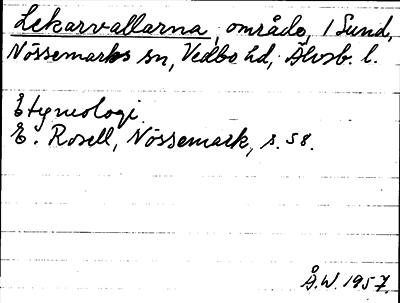 Lekarvallarna, område, 1 Sund,
Nössemarks sn, Vedbo hd, Älvsb. l.
Etymologi.
E. Rosell, Nössemark, s. 58.
Å.W. 1957.